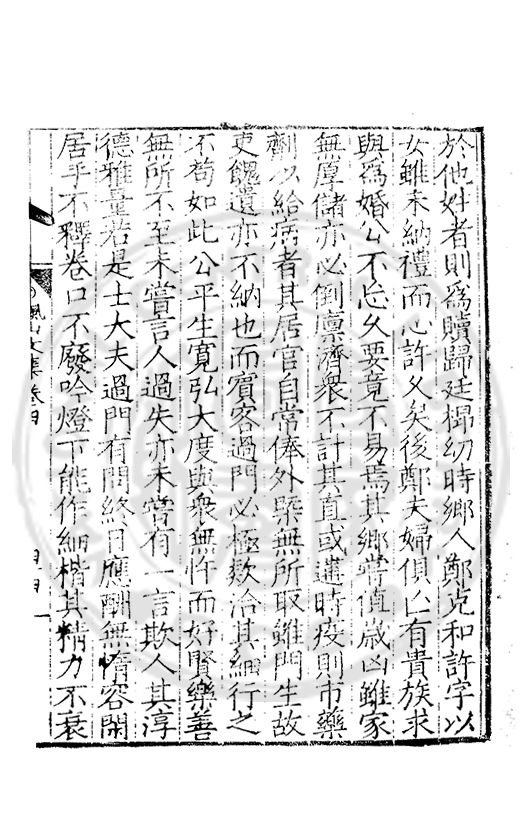 於他姓者則爲贖歸廷楊幼時鄉人鄭克和許字以
女雖未納禮而心許久矣後鄭夫婦俱亡有貴族求
與爲婚公不忘久要竟不易焉其鄉嘗值歲凶雖家
無厚儲亦必倒廪濟衆不計其直或遘時疫則市藥
劑以給病者其居官自常俸外槩無所取雖門生故
吏餽遺亦不納也而賓客過門必極欵洽其細行之
不苟如此公平生寛弘大度與衆無忤而好賢樂善
無所不至未嘗言人過失亦未嘗有一言欺人其淳
德雅量若是士大夫過門有問終日應酬無惰容閑
居手不釋卷口不廢吟燈下能作細楷其精力不衰
文集卷四